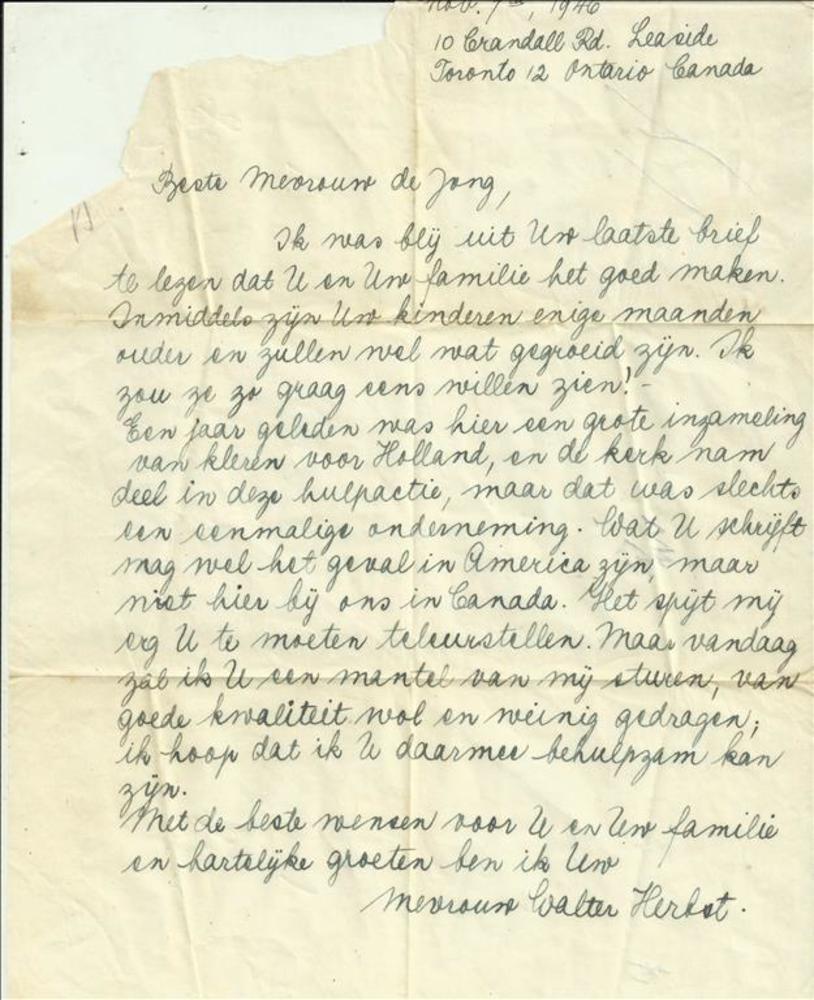 Nov. 7th, 1946
10 Crandall Rd. Leaside
Toronto 12 Ontario Canada
Beste Mevrouw de Jong,
Ik was blij uit Uw laatste brief
te lezen dat U en Uw familie het goed maken.
Inmiddels zijn Uw kinderen enige maanden
ouder en zullen wel wat gegroeid zijn. Ik
zou ze zo graag eens willen zien! -
Een jaar geleden was hier een grote inzameling
van kleren voor Holland, en de kerk nam
deel in deze hulpactie, maar dat was slechts
een eenmalige onderneming. Wat U schrijft
mag wel het geval in America zijn, maar
niet hier bij ons in Canada. Het spijt mij
erg U te moeten teleurstellen. Maar vandaag
zal ik U een mantel van mij sturen, van
goede kwaliteit wol en weinig gedragen;
ik hoop dat ik U daarmee behulpzam kan
zijn.
Met de beste wensen voor U en Uw familie
en hartelijke groeten ben ik Uw
Mevrouw Walter Herbst.